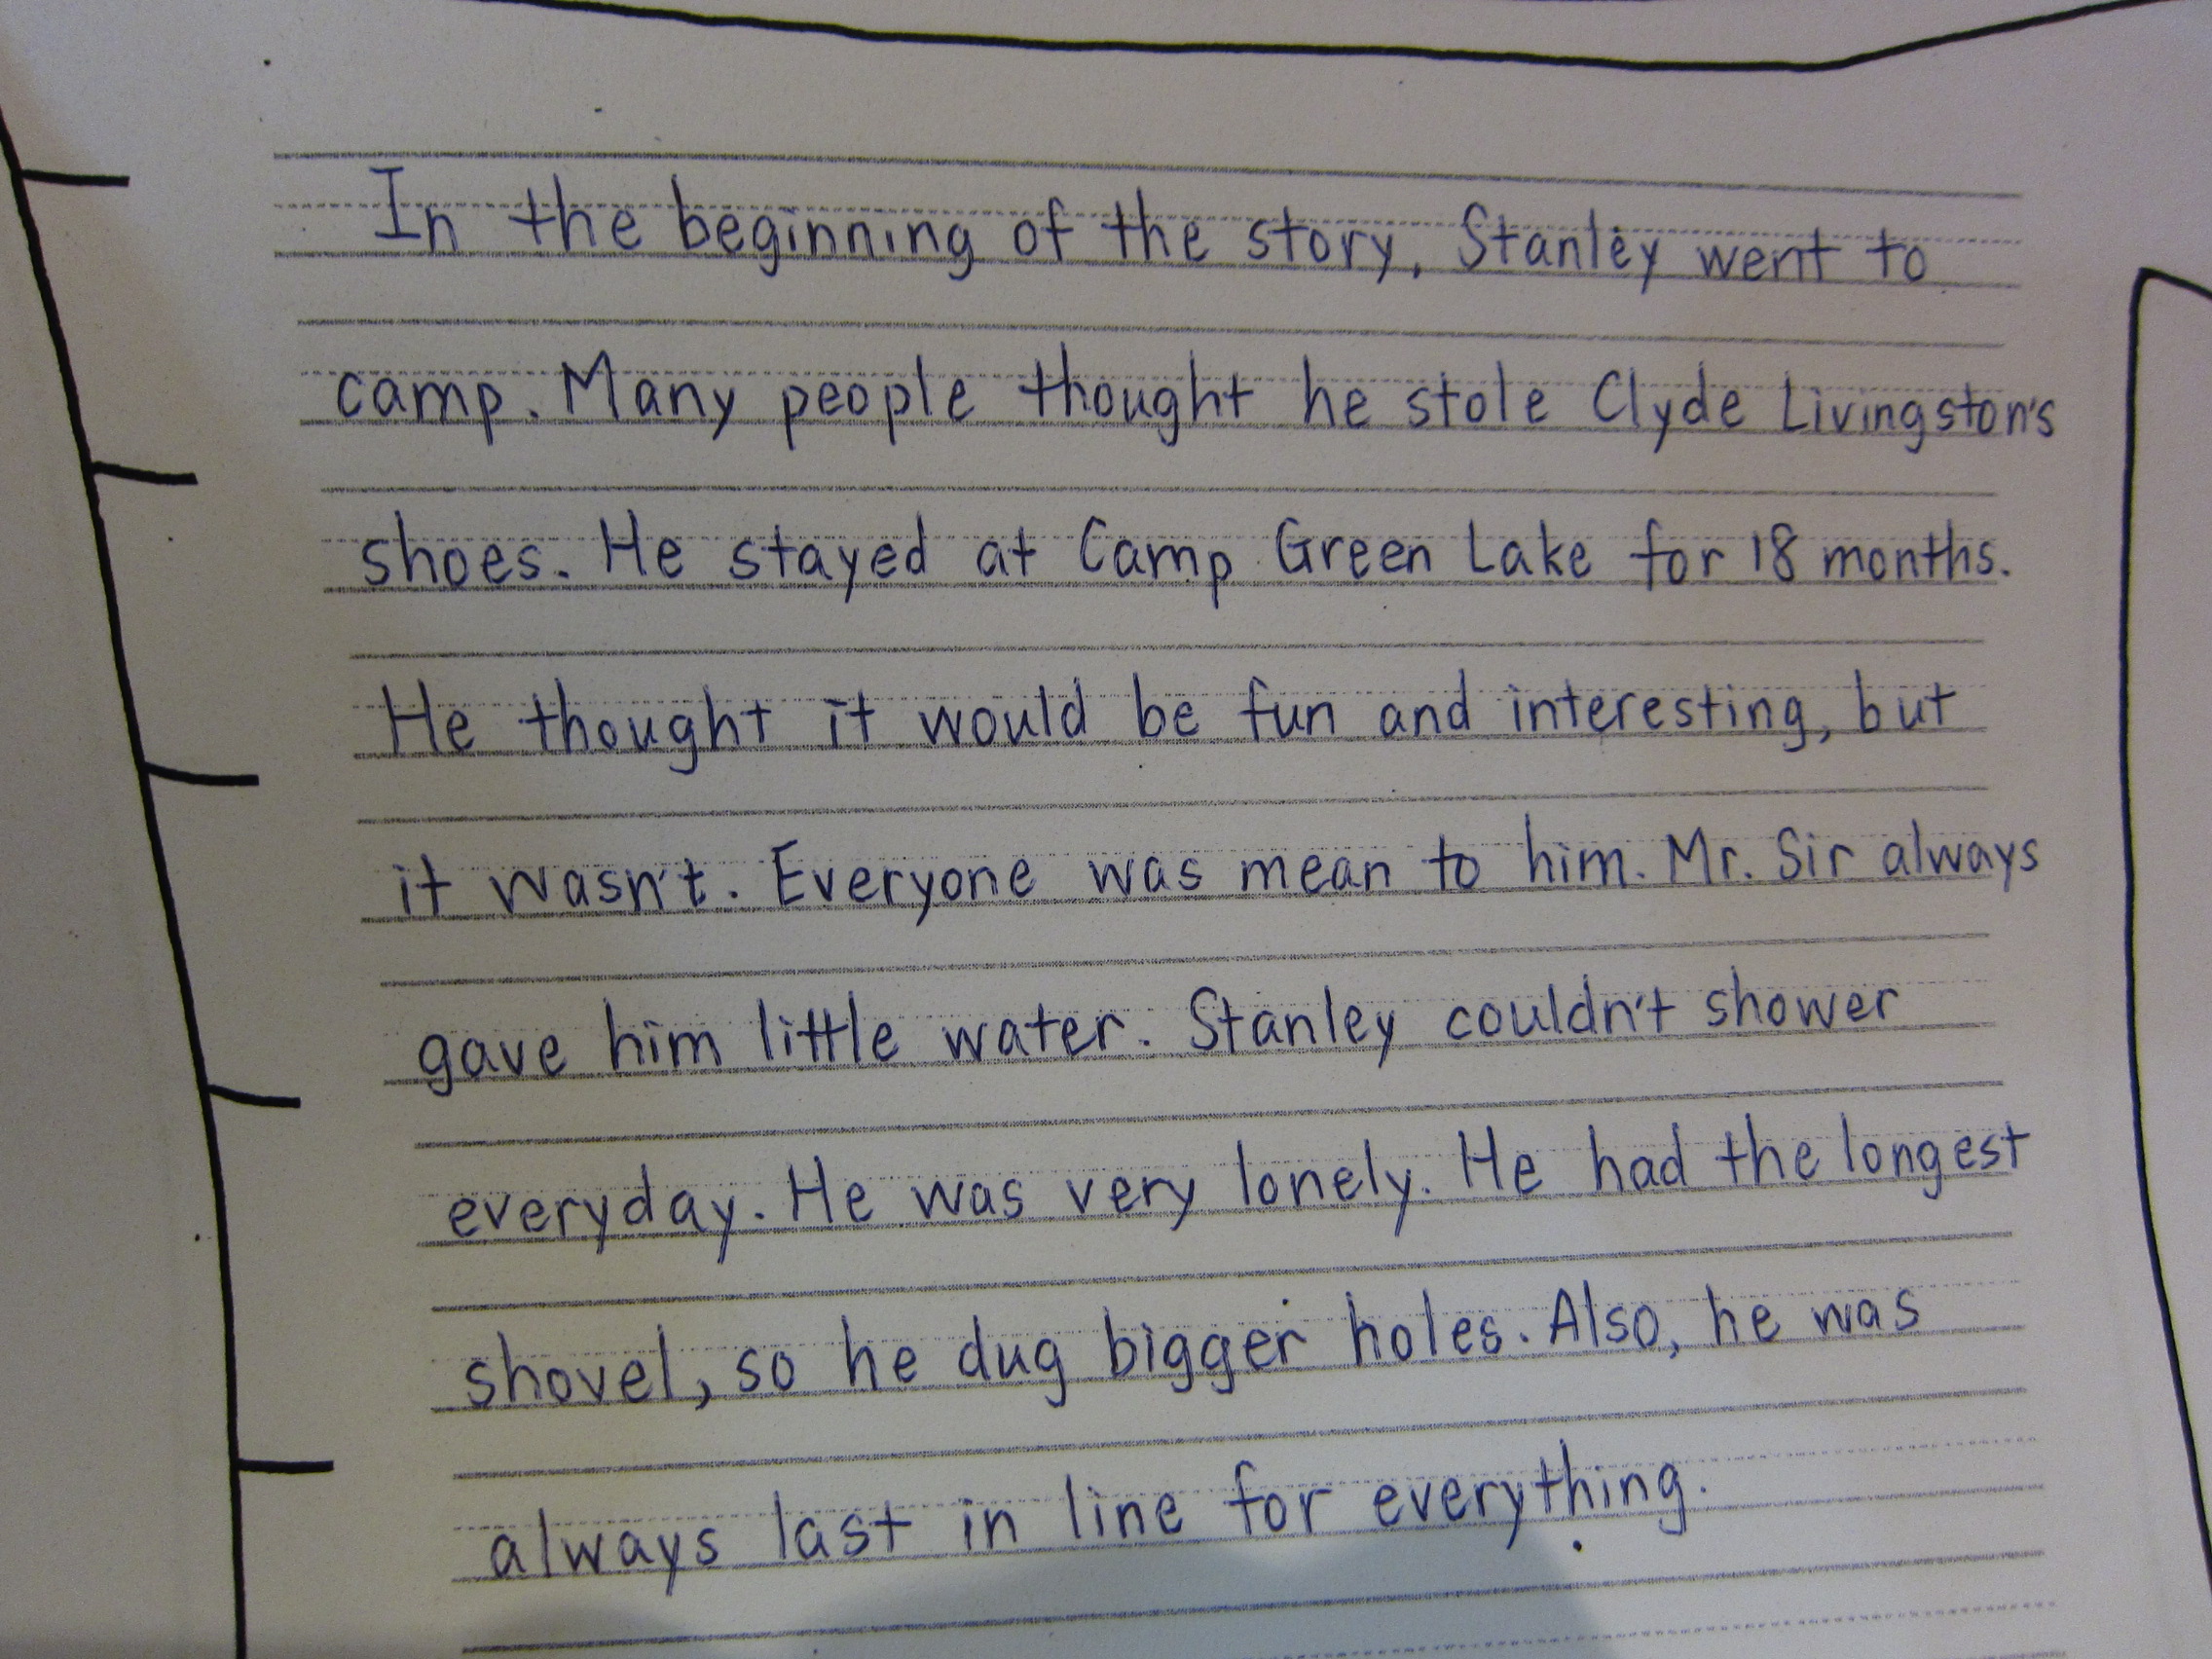 In the beginning of the story, Stanley went to
camp. Many people thought he stole Clyde Livingston's
shoes. He stayed at Camp Green Lake for 18 months.
He thought it would be fun and interesting, but
it wasn't. Everyone was mean to him. Mr. Sir always
gave him little water. Stanley couldn't shower
everyday. He was very lonely. He had the longest
shovel, so he dug bigger holes. Also, he was
always last in line for everything.